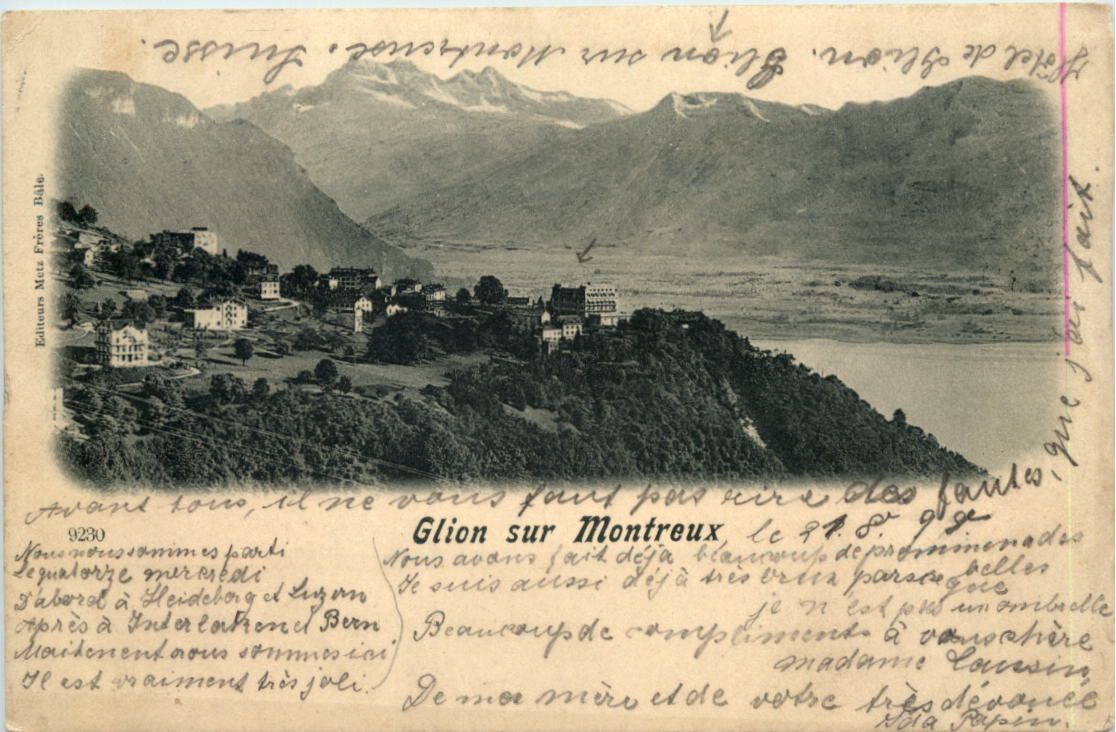 Hôtel de Glion. Glion sur Montreux. Suisse.
Editeurs Metz Frères Bâle.
Avant tous, il ne vous faut pas rire des fautes, que j'ai fait.
9230
Glion sur Montreux
le 21. 8.
Nous nous sommes parti
Le quatorze mercredi
D'abord à Heidelberg et Luzern
Après à Interlaken et Bern
Maitenent nous sommes ici
Il est vraiment très joli.
Nous avons fait déjà beaucoup de promenades belles
Je suis aussi déjà très brun parce que
je n'est pas un ombrelle
Beaucoup de compliments à vous chère
madame
De ma mère et de votre très dévouée
Ida Papen.